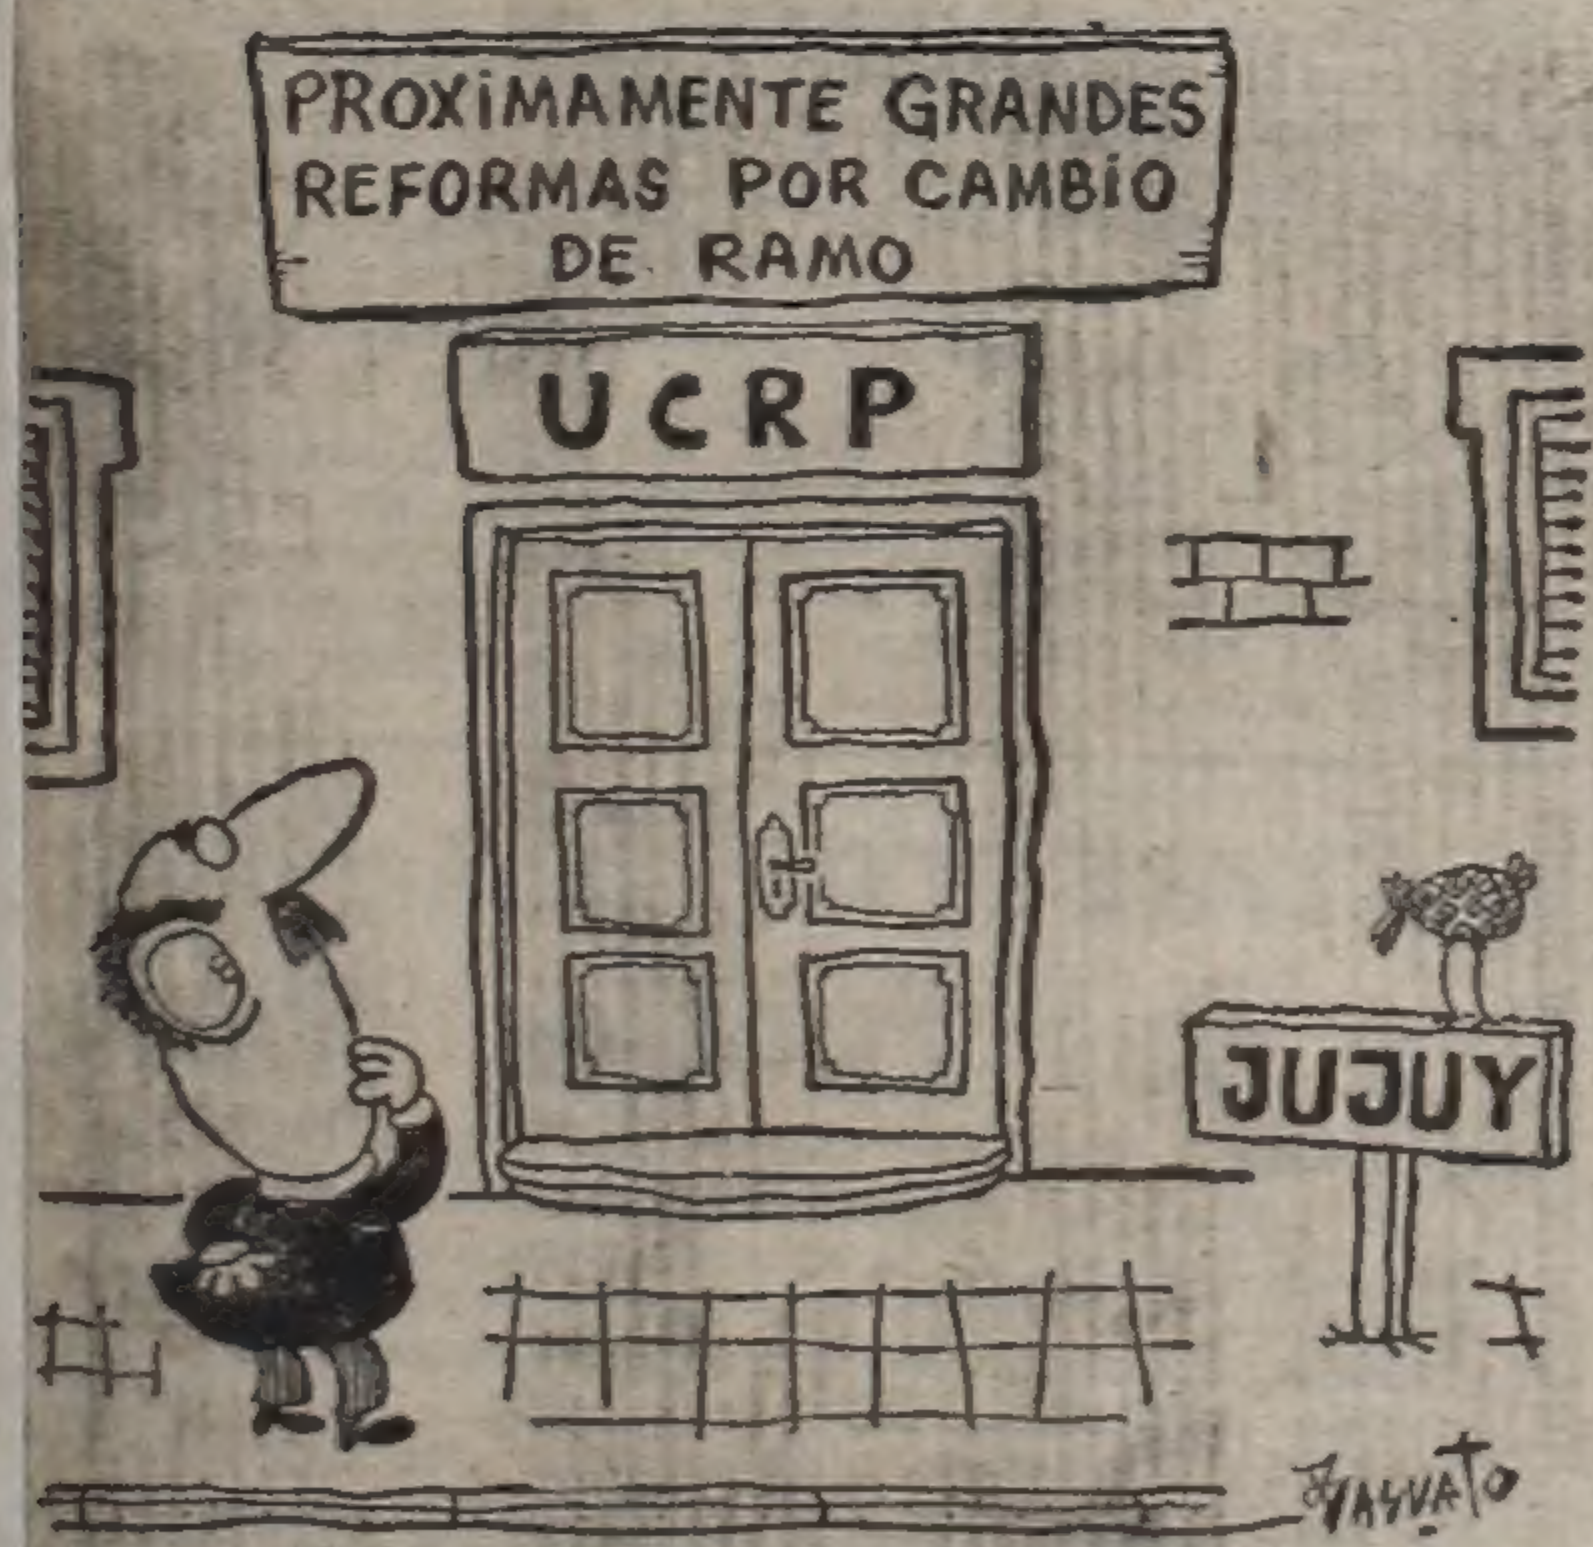 PROXiMAMENTE GRANDES
REFORMAS POR CAMBiO
DE RAMO
UCRP
JUJUY